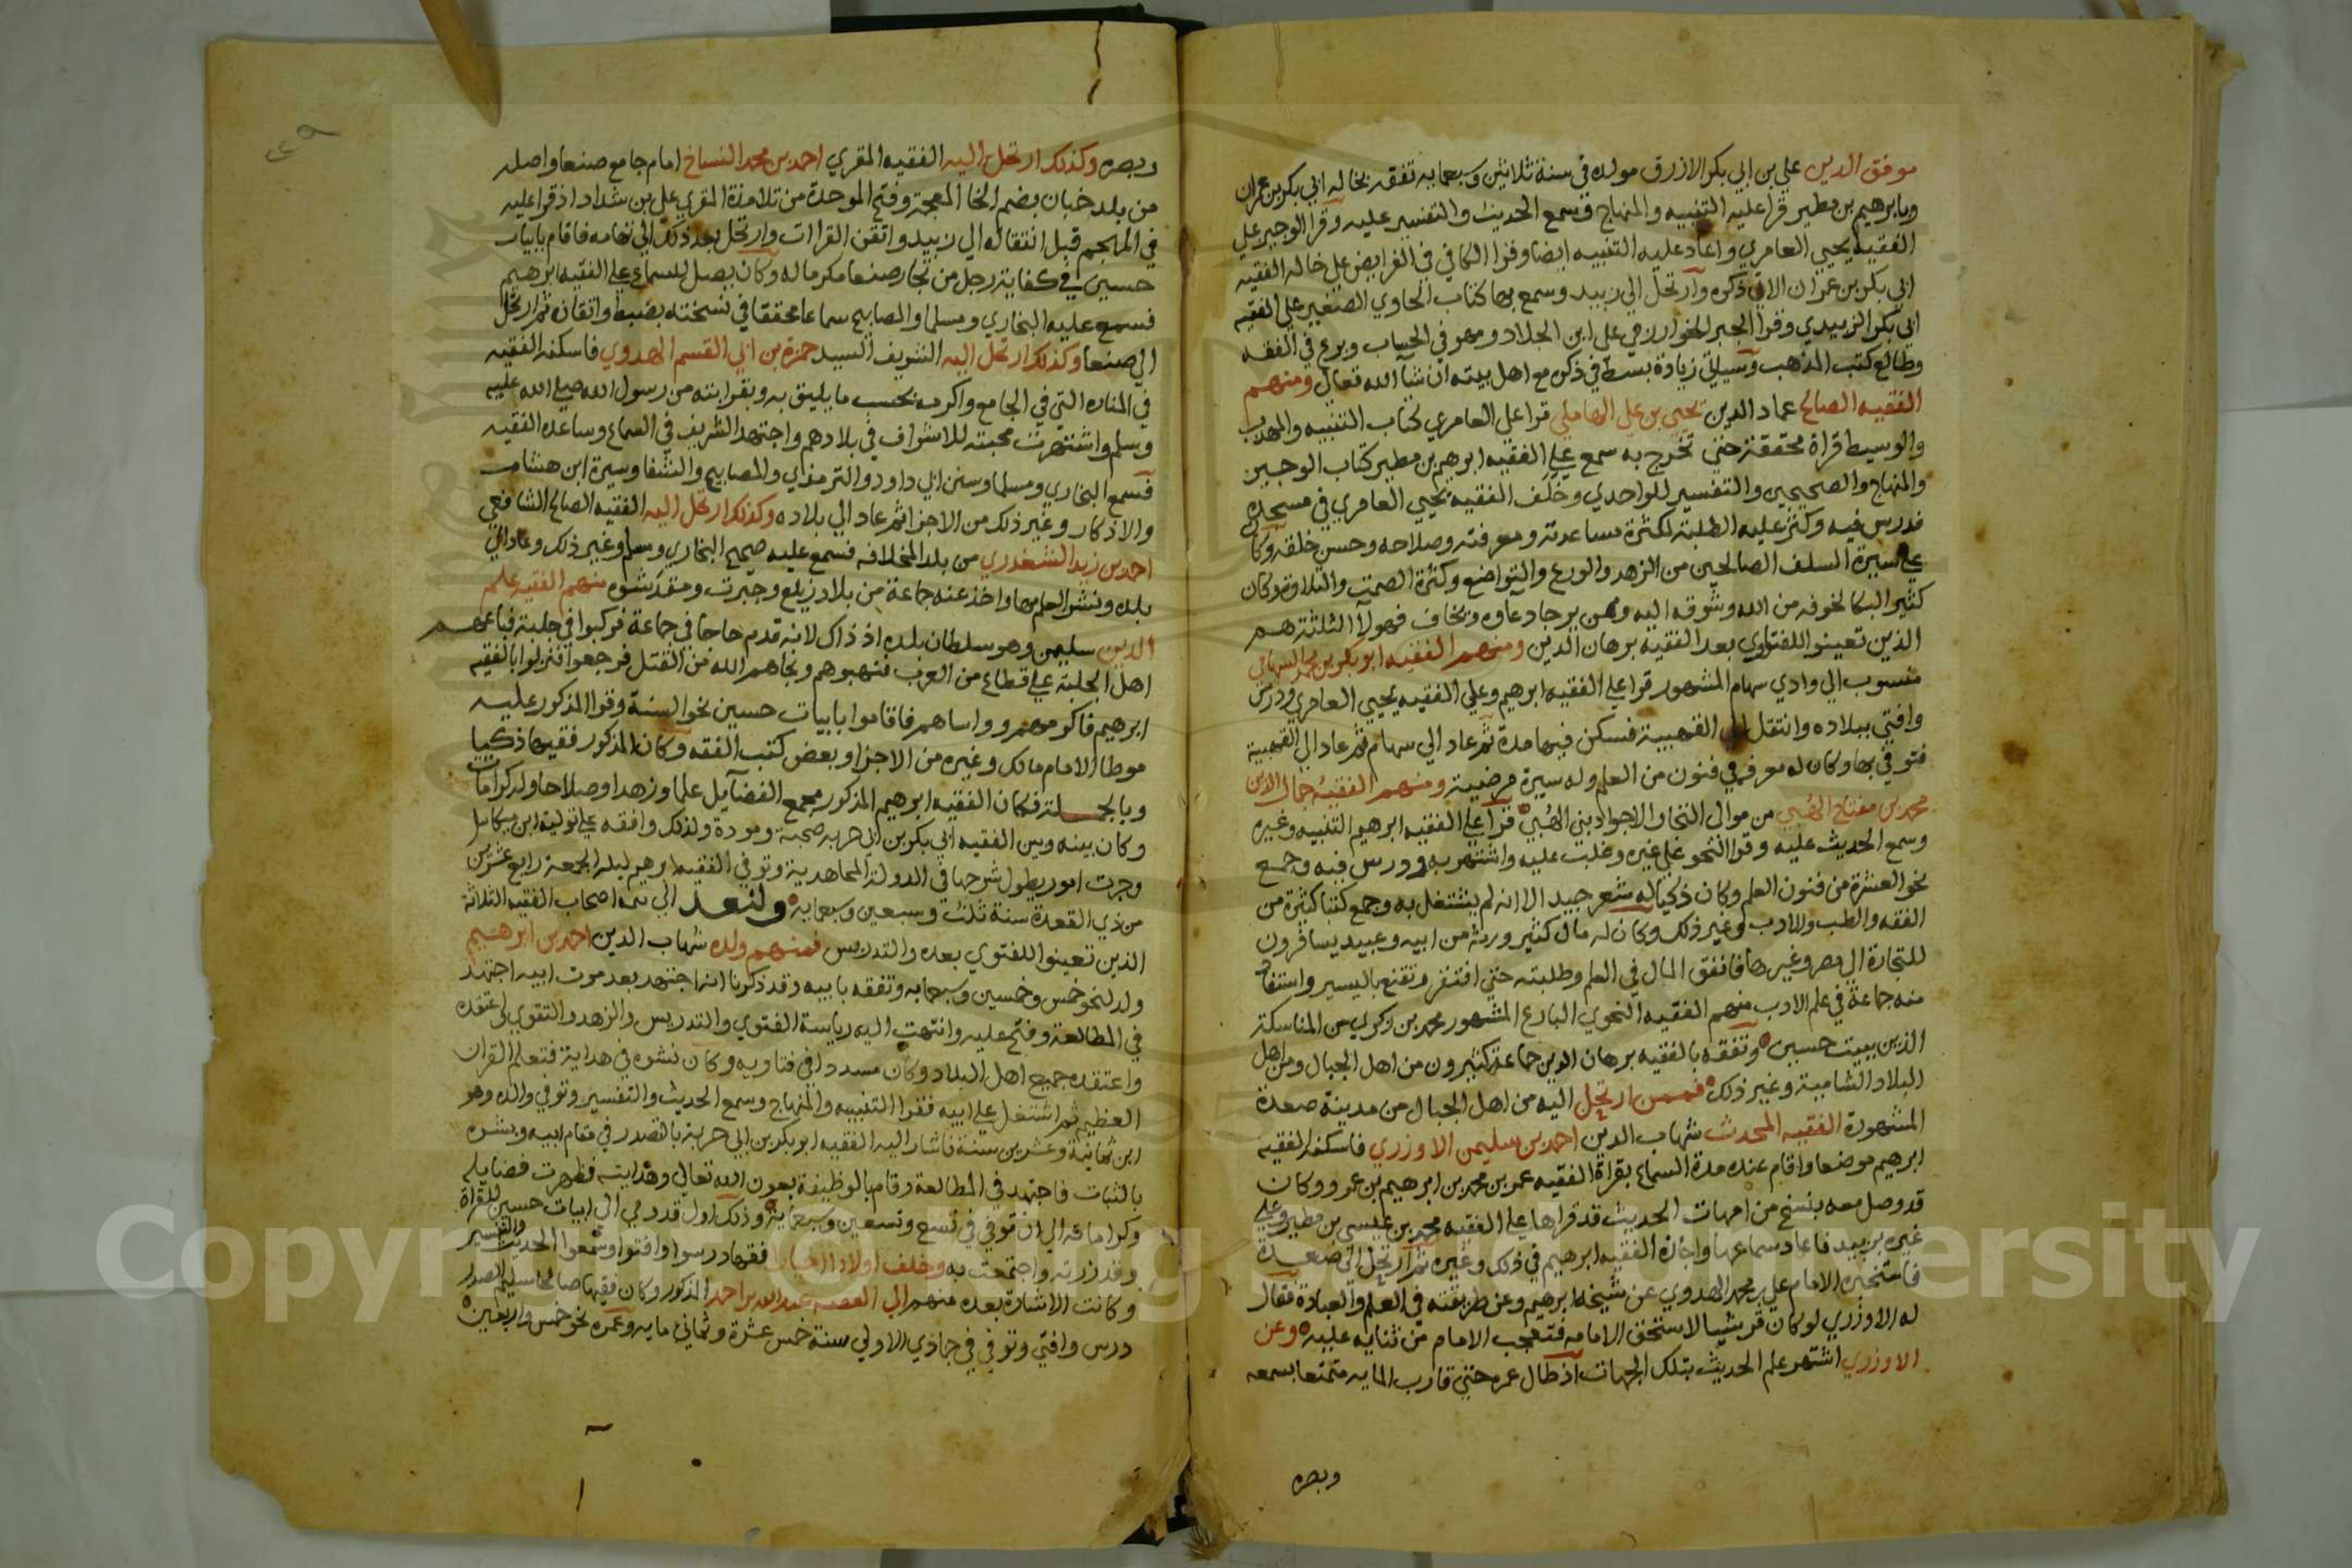 موفق الدين علي بن ابي بكر الازرق مولده في سنة ثلاثين وسبعمايه تفقه بخاله ابي بكر بن عمران
وبابرهيم بن مطير قرا عليه التنبيه والمنهاج وسمع الحديث والتفسير عليه وقرا الوجيز علي
الفقيه يحيي العامري واعاد عليه التنبيه ايضا وقرا الكافي في الفرايض علي خاله الفقيه
ابي بكر بن عمران الاتي ذكره وارتحل الي زبيد وسمع بها كتاب الحاوي الصغير علي الفقيه
ابي بكر الزبيدي وقرا الجبر للخوارزمي علي ابن الجلاد ومهر في الحساب وبرع في الفقه
وطالع كتب المذهب وسياتي زيادة بسط في ذكره مع اهل بيته ان شا الله تعالي ومنهم
الفقيه الصالح عماد الدين يحيي بن علي الهاملي قرا علي العامري كتاب التنبيه والمهذب
والوسيط قراة محققة حتي تخرج به سمع علي الفقيه ابرهيم بن مطير كتاب الوجيز
والمنهاج والصحيحين والتفسير للواحدي وخلف الفقيه يحيي العامري في مسجده
فدرس فيه وكثر عليه الطلبة لكثرة مساعدته ومعرفته وصلاحه وحسن خلقه وكان
علي سيرة السلف الصالحين من الزهد والورع والتواضع وكثرة الصمت والتلاوة وكان
كثير البكا لخوفه من الله وشوقه اليه وممن يرجا دعاوه ويخاف فهولا الثلثة هم
الذين تعينوا للفتاوي بعد الفقيه برهان الدين ومنهم الفقيه ابو بكر بن محمد السهامي
منسوب الي وادي سهام المشهور قرا علي الفقيه ابرهيم وعلي الفقيه يحيي العامري ودرس
وافتي ببلاده وانتقل الي القحبية فسكن فيها مدة ثم عاد الي سهام ثم عاد الي القحبية
فتوفي بها وكان له معرفة في فنون من العلم وله سيرة مرضية ومنهم الفقيه جمال الدين
محمد بن مفتاح الهُبي من موالي التخاو الاجواد بني الهُبي قرا علي الفقيه ابرهيم التنبيه وغيره
وسمع الحديث عليه وقرا النحو علي غيره وغلب عليه واشتهر به ودرس فيه وجمع
نحو العشرة من فنون العلم وكان ذكيا له شعر جيد الا انه لم يشتغل به وجمع كتبا كثيرة من
الفقه والطب والادب وغير ذلك وكان له مال كثير ورثه من ابيه وعبيد يسافرون
للتجارة الي مصر وغيرها فانفق المال في العلم وطلبته حتي افتقر وتقنع باليسير واستفاد
منه جماعة في علم الادب منهم الفقيه النحوي البارع المشهور محمد بن زكري من المناسكة
الذين ببيت حسين وتفقه بالفقيه برهان الدين جماعة كثيرون من اهل الجبال ومن اهل
البلاد الشامية وغير ذلك فممن ارتحل اليه من اهل الجبال من مدينة صعدة
المشهورة الفقيه المحدث شهاب الدين احمد بن سليمن الاوزري فاسكنه الفقيه
ابرهيم موضعا واقام عنده مدة السماع بقراة الفقيه عمر بن محمد بن ابرهيم بن عمرو وكان
قد وصل معه بنسخ من امهات الحديث قد قراها علي الفقيه محمد بن عيسي بن مطير وعلي
غيره بزبيد فاعاد سماعها واجازه الفقيه ابرهيم في ذلك وغيره ثم ارتحل الي صعدة
فاستخبره الامام علي بن محمد الهدوي عن شيخه ابرهيم وعن طريقته في العلم والعبادة فقال
له الاوزري لو كان قرشيا لاستحق الامامه فتعجب الامام من ثنايه عليه وعن
الاوزري اشتهر علم الحديث بتلك الجهات اذ طال عمره حتي قارب المايه متمتعا بسمعه
وبصره
وبصره وكذلك ارتحل اليه الفقيه المقري احمد بن محمد النساخ امام جامع صنعا واصله
من بلد خبان بضم الخا المعجمة وفتح الموحدة من تلامذة المقري علي بن شداد اذ قرا عليه
في الملحم قبل انتقاله الي زبيد واتقن القراات وارتحل بعد ذلك الي تهامه فاقام بابيات
حسين في كفاية رجل من تجار صنعا مكرما له وكان يصل للسماع علي الفقيه ابرهيم
فسمع عليه البخاري ومسلما والمصابيح سماعا محققا في نسخته بضبط واتقان ثم ارتحل
الي صنعا وكذلك ارتحل اليه الشريف السيد حمزة بن ابي القسم الهدوي فاسكنه الفقيه
في المناره التي في الجامع واكرمه بحسب ما يليق به وبقرابته من رسول الله صلي الله عليه
وسلم واشتهرت محبته للاشراف في بلادهم واجتهد الشريف في السماع وساعده الفقيه
فسمع البخاري ومسلما وسنن ابي داود والترمذي والمصابيح والشفا وسيرة ابن هشام
والاذكار وغير ذلك من الاجزا ثم عاد الي بلاده وكذلك ارتحل اليه الفقيه الصالح الشافعي
احمد بن زيد الشغدري من بلد المخلافه فسمع عليه صحيح البخاري ومسلم وغير ذلك وعاد الي
بلده ونشر العلم بها واخذ عنه جماعة من بلاد زيلع وجبرت ومقدشوه منهم الفقيه علم
الدين سليمن وهو سلطان بلده اذ ذاك لانه قدم حاجا في جماعة فركبوا في جلبة فباعهم
اهل الجلبة علي قطاع من العرب فنهبوهم ونجاهم الله من القتل فرجعوا فنزلوا بالفقيه
ابرهيم فاكرمهم وواساهم فاقاموا بابيات حسين نحو السنة وقرا المذكور عليه
موطا الامام مالك وغيره من الاجزا وبعض كتب الفقه وكان المذكور فقيها ذكيا
وبالجملة فكان الفقيه ابرهيم المذكور مجمع الفضايل علما وزهدا وصلاحا وله كرامات
وكان بينه وبين الفقيه ابي بكر بن ابي حربه صحبة ومودة ولذلك وافقه علي تولية ابن ميكاييل
وجرت امور يطول شرحها في الدولة المجاهدية وتوفي الفقيه ابرهيم ليلة الجمعة رابع عشرين
من ذي القعدة سنة ثلث وسبعين وسبعمايه ولنعد الي تتمة اصحاب الفقيه الثلاثة
الذين تعينوا للفتوي بعده والتدريس فمنهم ولده شهاب الدين احمد بن ابرهيم
ولد لنحو خمس وخمسين وسبعمايه وتفقه بابيه وقد ذكرنا انه اجتهد بعد موت ابيه اجتهد
في المطالعة وفتح عليه وانتهت اليه رياسة الفتوي والتدريس والزهد والتقوي
واعتقده جميع اهل البلاد وكان مسددا في فتاويه وكان نشوه في هداية فتعلم القران
العظيم ثم اشتغل علي ابيه فقرا التنبيه والمنهاج وسمع الحديث والتفسير وتوفي والده وهو
ابن ثمانية وعشرين سنة فاشار اليه الفقيه ابو بكر بن ابي حربة بالتصدر في مقام ابيه وبشره
بالثبات فاجتهد في المطالعة وقام بالوظيفة بعون الله تعالي وهدايته فظهرت فضايله
وكراماته الي ان توفي في تسع وتسعين وسبعمايه وذلك اول قدومي الي ابيات حسين للقراة
وقد زرته واجتمعت به وخلف اولادا فقها درسوا وافتوا وسمعوا الحديث والتفسير
وكانت الاشارة بعده منهم الي الفقيه عبد الله بن احمد المذكور وكان فقيها صالحا سليم الصدر
درس وافتي وتوفي في جمادي الاولي سنة خمس عشرة وثماني مايه وعمره نحو خمس واربعين
Copyright © King Saud University